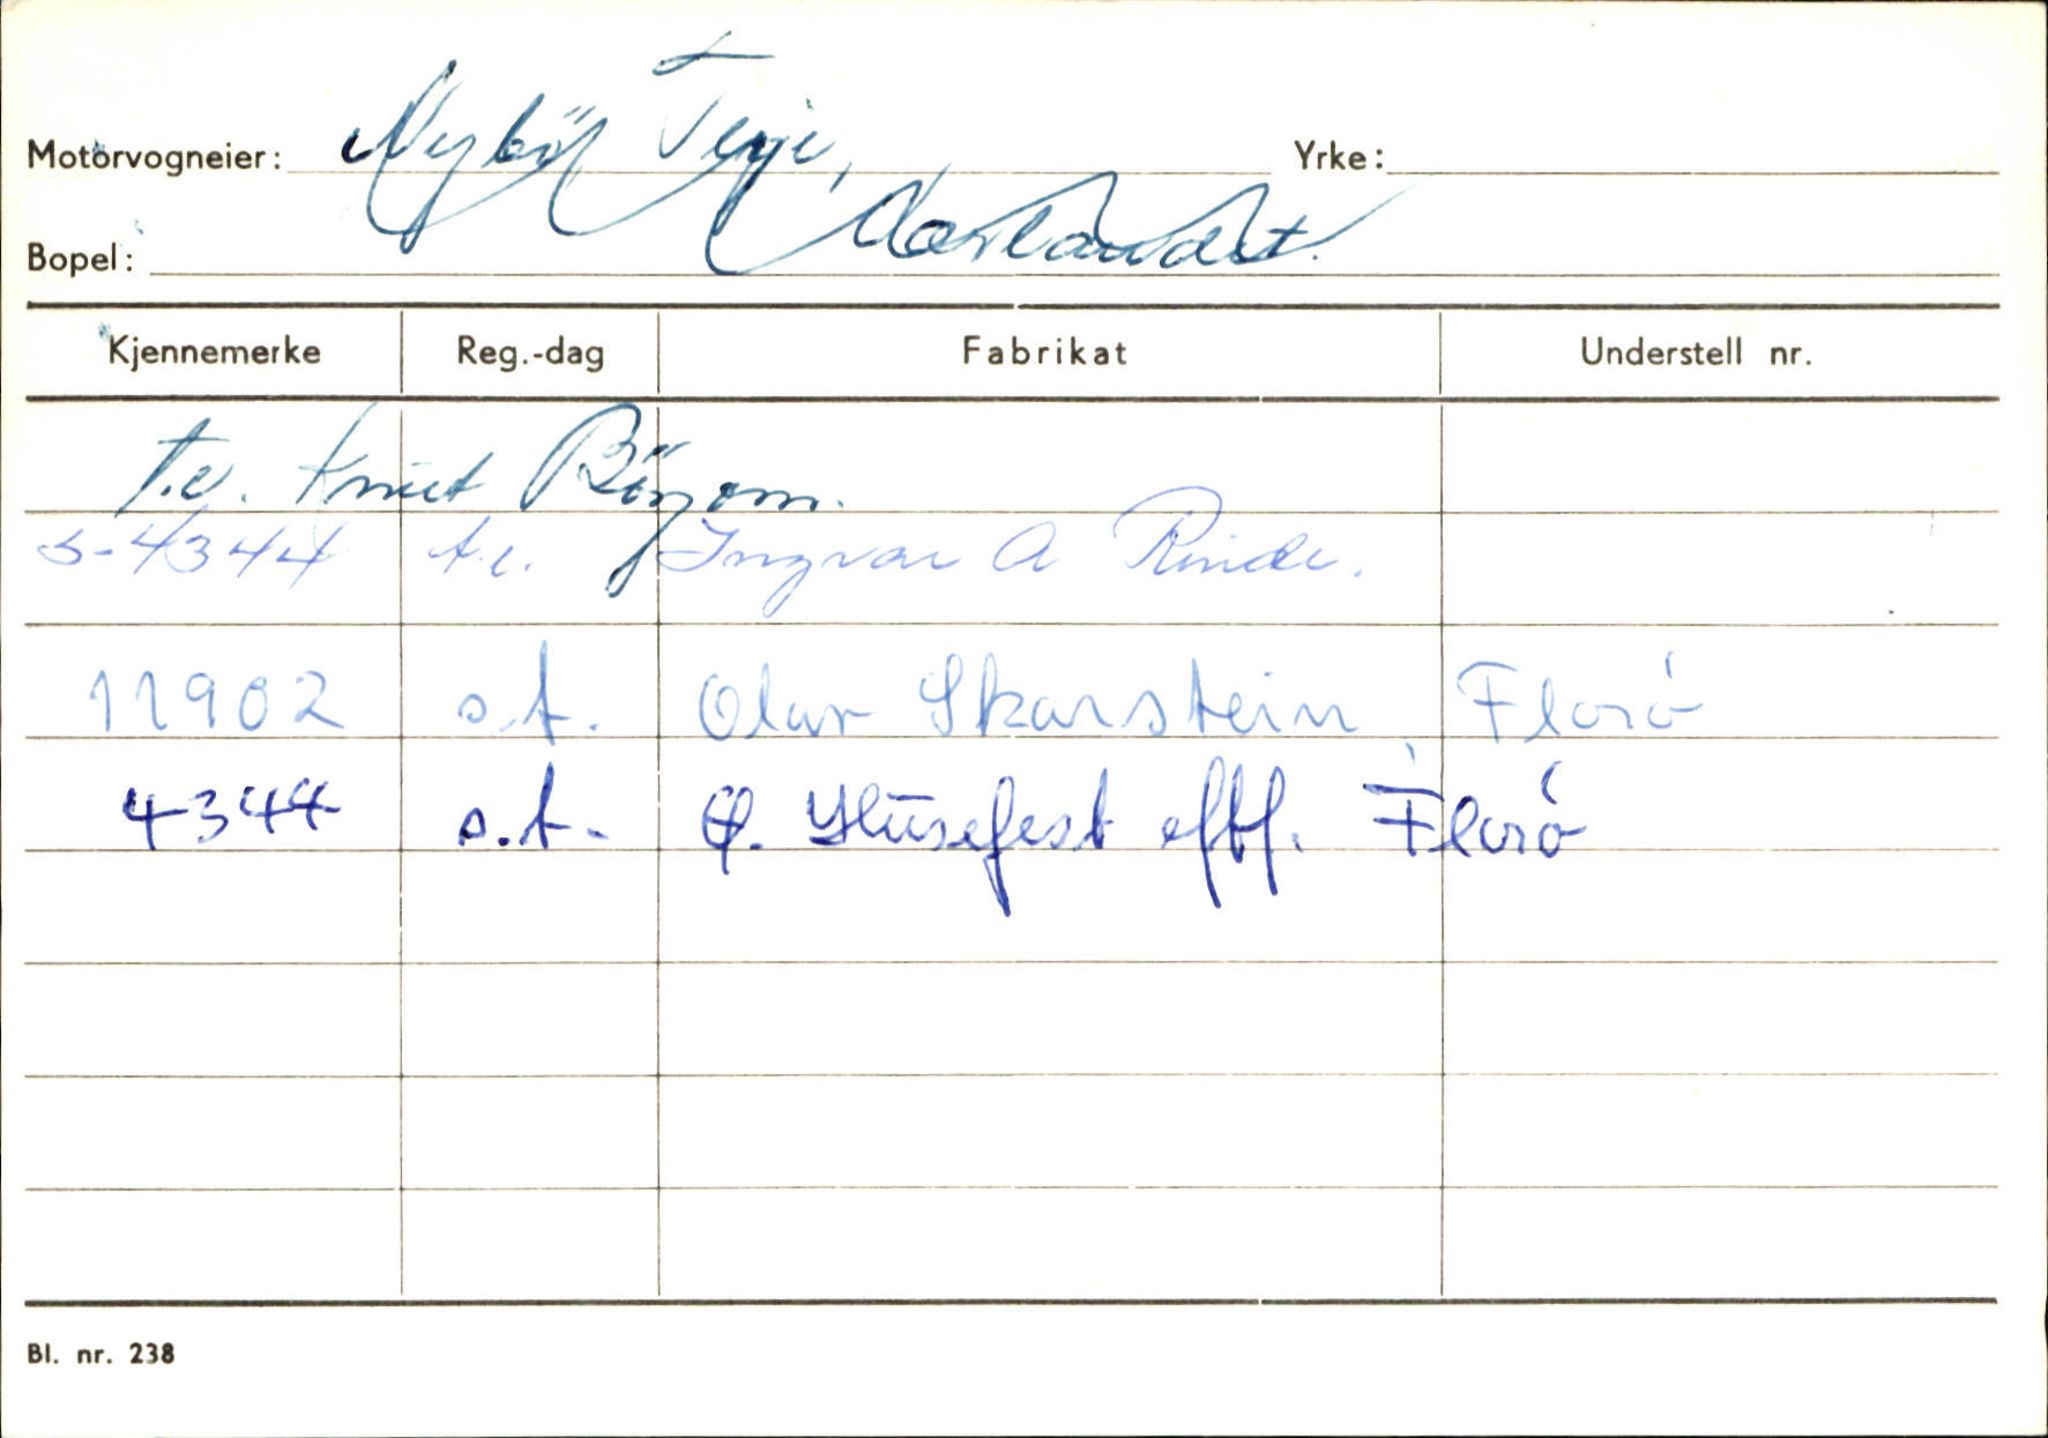 Motorvogneier: Nybö Terje, Yrke:
Bopel: Norlandet.
Kjennemerke Reg.-dag Fabrikat Understell nr.
t.e. Knut
S-4344 t.e. Ingvar A Rinde.
11902 s.t. Olav Skarstein, Florö
4344 s.t. Husefest eftf. Florö
Bl. nr. 238